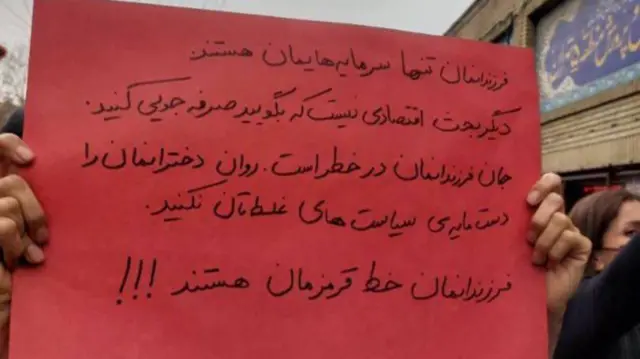 فرزندانمان تنها سرمایه‌هایمان هستند.
دیگر بحث اقتصادی نیست که بگویید صرفه جویی کنید.
جان فرزندانمان در خطر است. روان دخترانمان را
دست مایه‌ی سیاست های غلطتان نکنید.
فرزندانمان خط قرمزمان هستند !!!